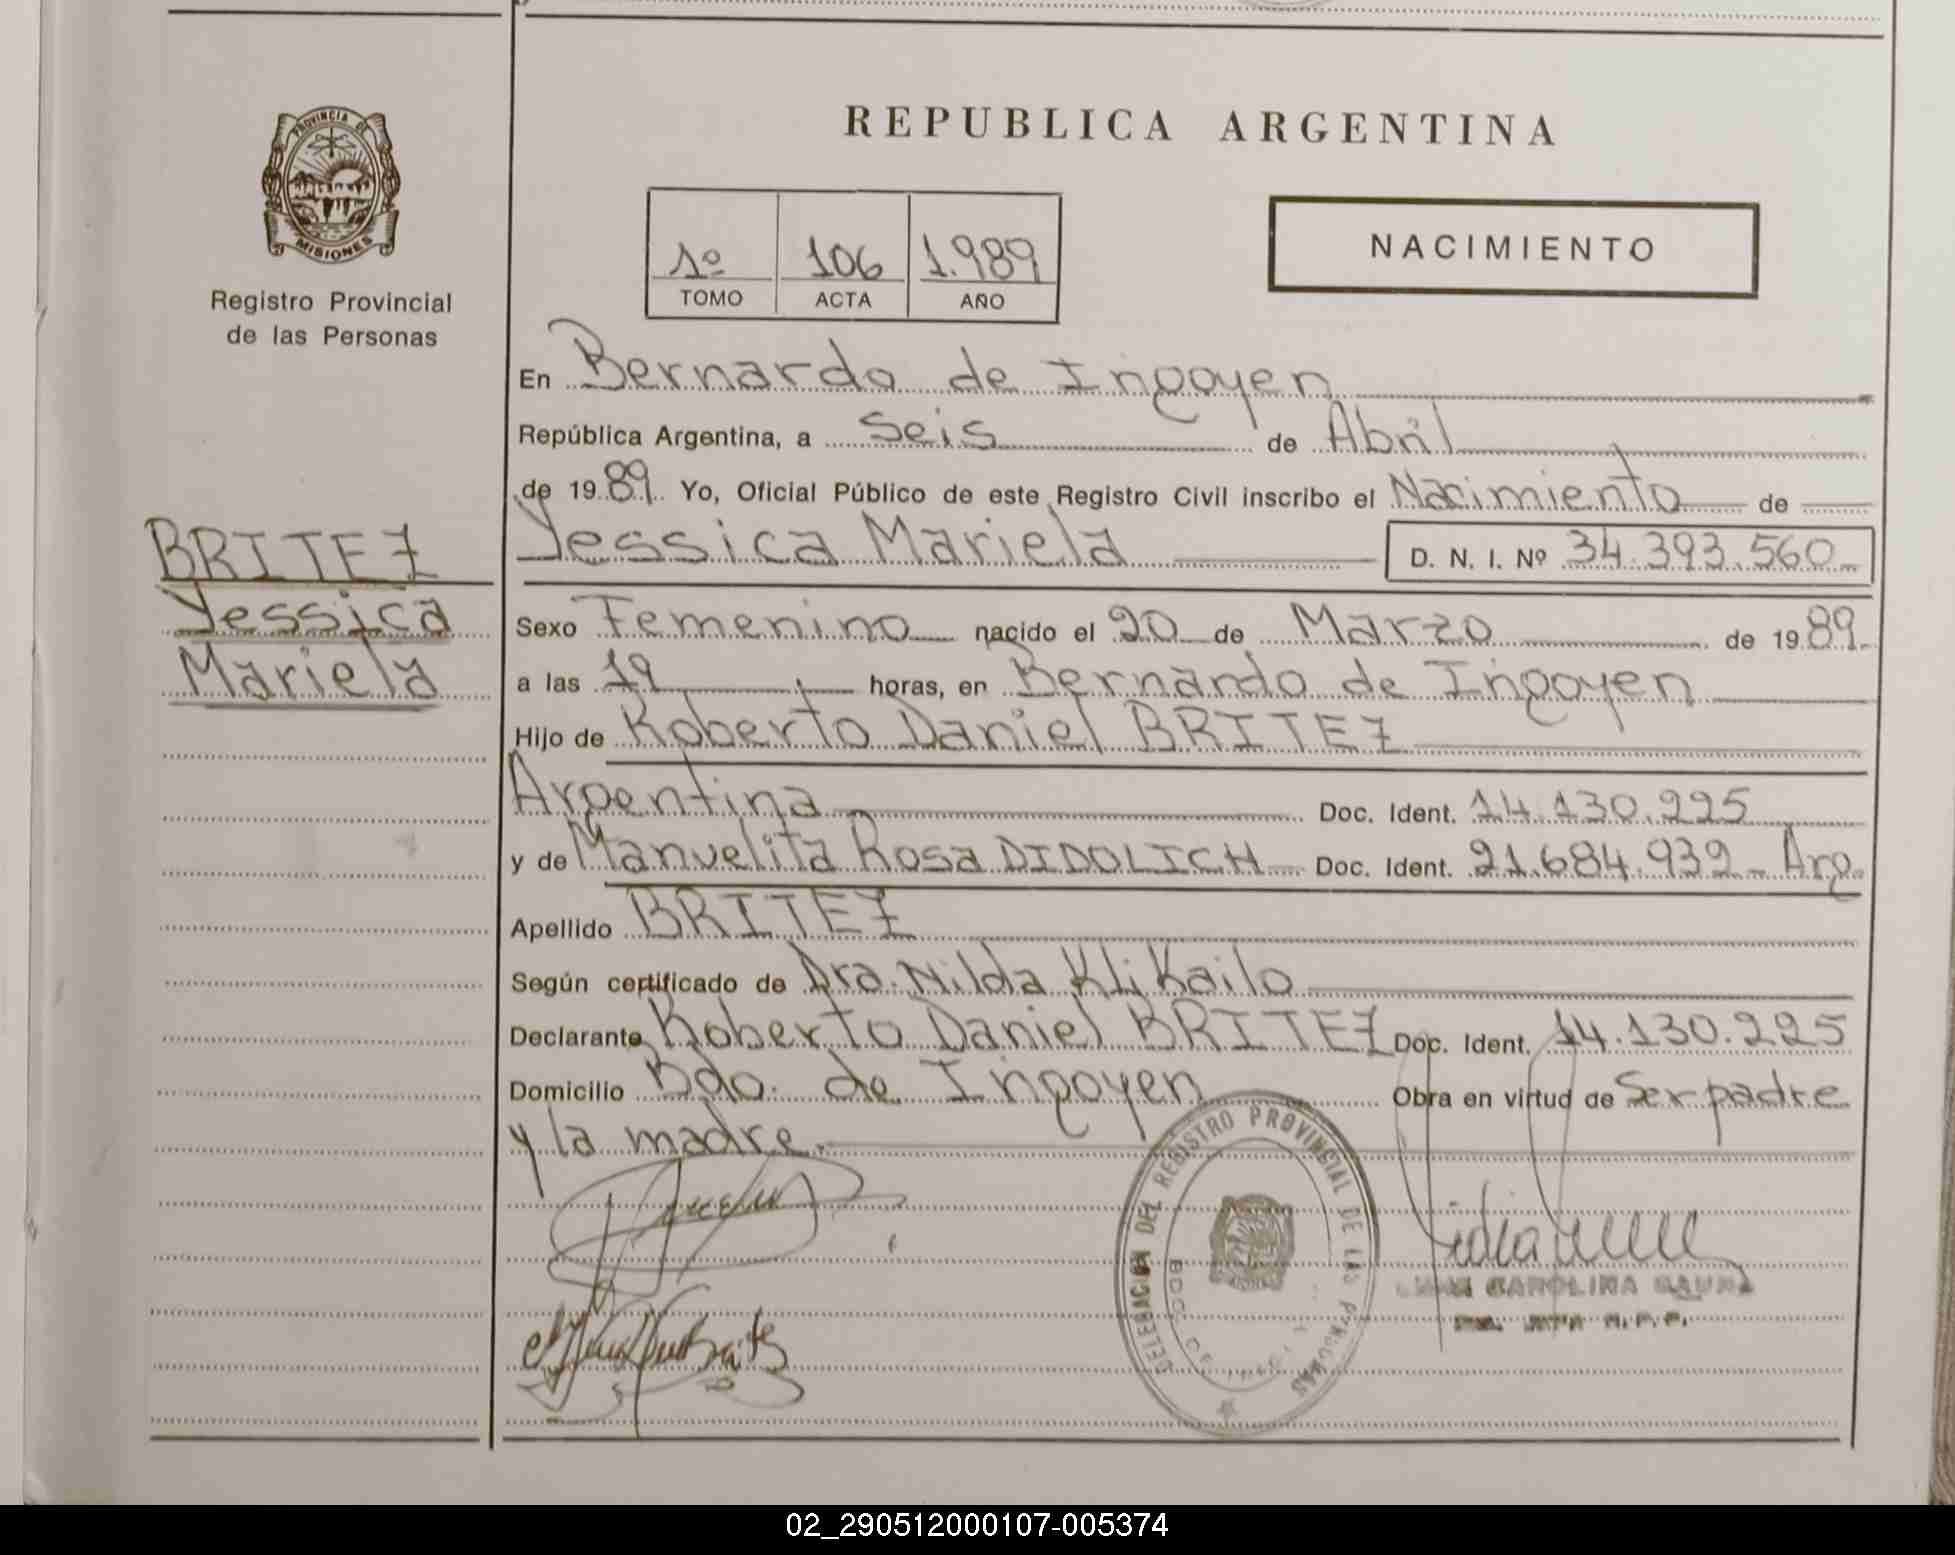 PROVINCIA DE
MISIONES
Registro Provincial
de las Personas
BRITEZ
Yessica
Mariela
REPUBLICA ARGENTINA
1º 106 1.989
TOMO ACTA AÑO
NACIMIENTO
En Bernardo de Irigoyen
República Argentina, a Seis de Abril
de 1989 Yo, Oficial Público de este Registro Civil inscribo el Nacimiento de
Yessica Mariela D. N. I. Nº 34.393.560
Sexo Femenino nacido el 20 de Marzo de 1989
a las 19 horas, en Bernardo de Irigoyen
Hijo de Roberto Daniel BRITEZ
Argentina Doc. Ident. 14.130.225
y de Manuelita Rosa DIDOLICH Doc. Ident. 21.684.932 Arg.
Apellido BRITEZ
Según certificado de Dra. Nilda Klikailo
Declarante Roberto Daniel BRITEZ Doc. Ident. 14.130.225
Domicilio Bdo. de Irigoyen Obra en virtud de Ser padre
y la madre.
DELEGACION DEL REGISTRO PROVINCIAL DE LAS PERSONAS
CAROLINA
02_290512000107-005374